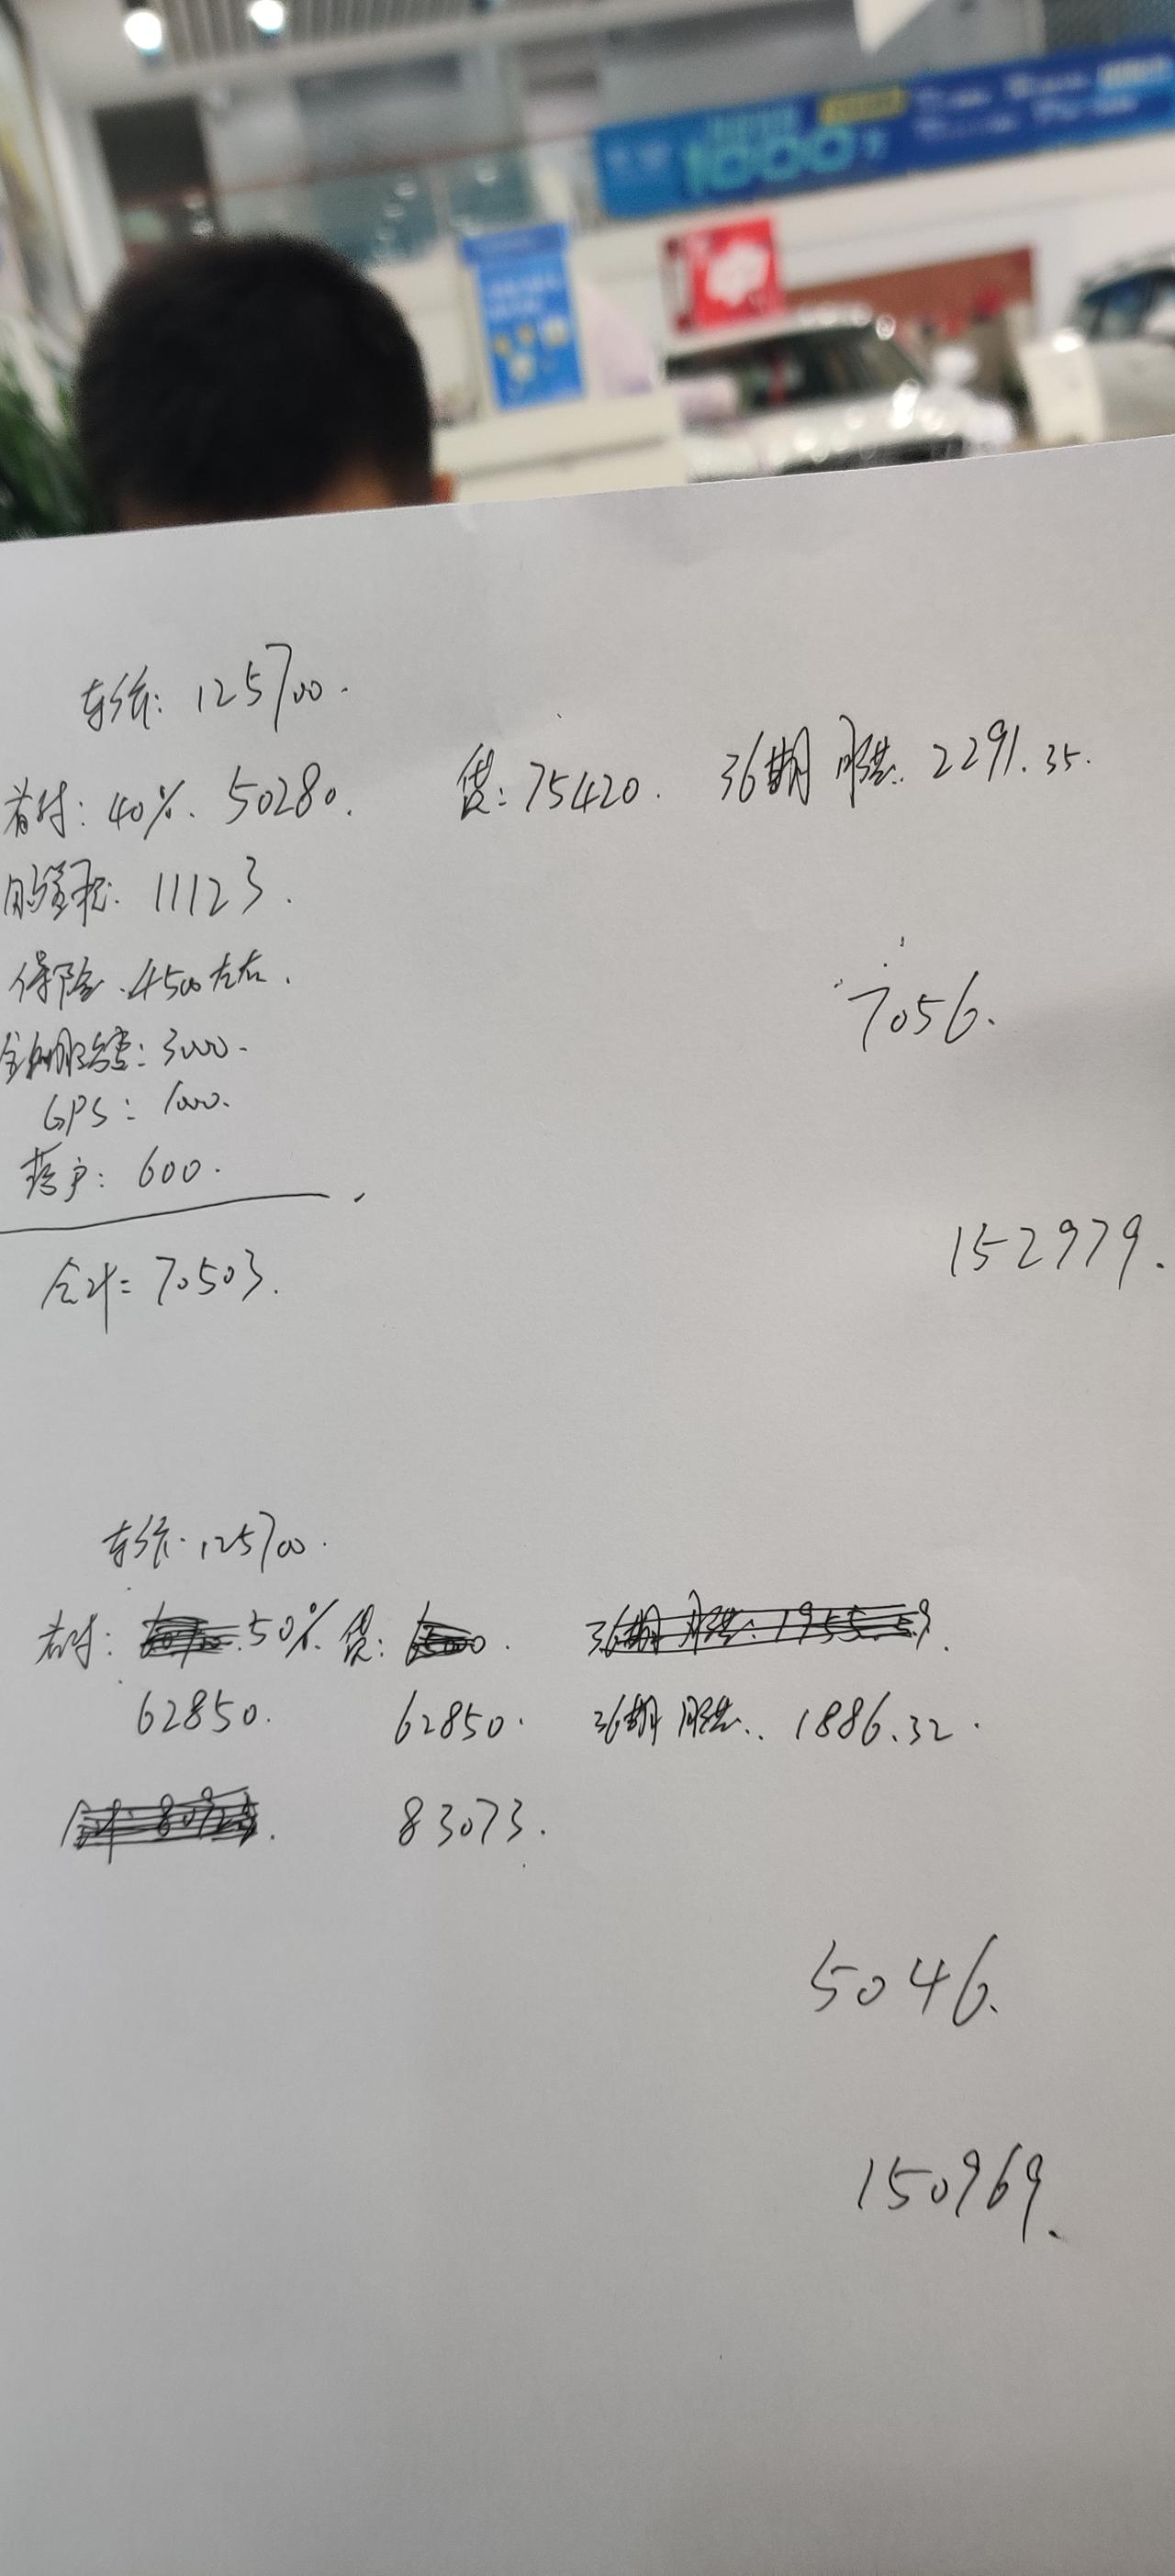 1000
车价: 125700.
首付: 40%. 50280. 贷: 75420. 36期 月供. 2291.35.
购置税: 11123.
保险. 4500左右.
7056.
金融服务费: 3000.
GPS: 1000.
落户: 600.
152979.
合计= 70503.
车价. 125700.
首付: 50% 贷: 36期 月供: 1955.59.
62850. 62850. 36期 月供. 1886.32.
83073.
5046.
150969.